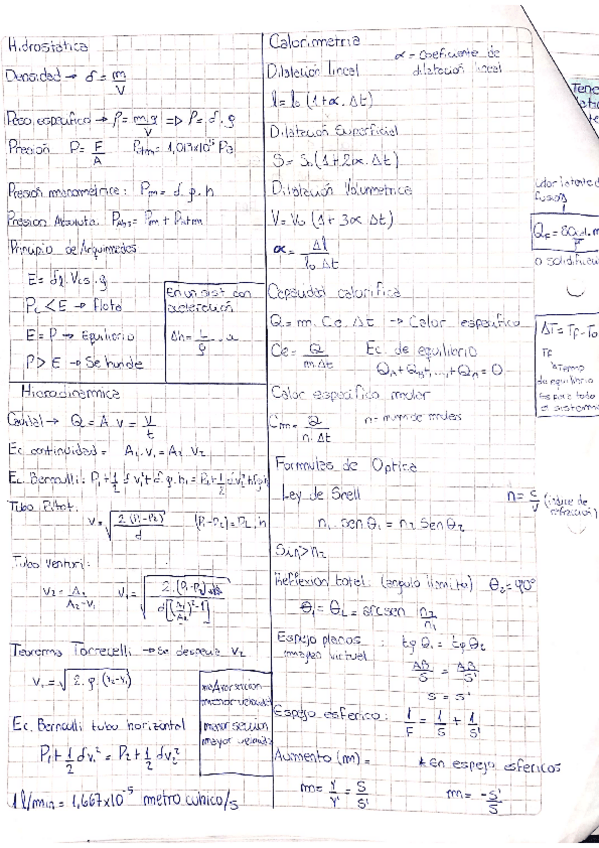 Hidrostática
Densidad → δ = m/V
Peso específico → ρ = m.g/V => ρ = δ.g
Presión P = F/A Patm = 1,013x10⁵ Pa
Presión manométrica: Pm = δ.g.h
Presión Absoluta: PAbs = Pm + Patm
Principio de Arquímedes
E = δL.Vcs.g
Pc < E → flota
E = P → Equilibrio
P > E → Se hunde
En un sist con
aceleración
Hidrodinámica
Caudal → Q = A.v = V/t
Ec continuidad = A₁.v₁ = A₂.v₂
Ec. Bernoulli: P₁ + 1/2 δ v₁² + δ.g.h₁ = P₂ + 1/2 δ v₂² + δ.g.h
Tubo Pitot:
v = √(2.(P₁-P₂)/d) (P₁-P₂) = PL.h
Tubo Venturi:
Teorema Torrecelli → Se desprecia v₂
v₁ = √(2.g.(y₂-y₁))
menor velocidad
menor sección
mayor velocidad
Ec. Bernoulli tubo horizontal
P₁ + 1/2 δv₁² = P₂ + 1/2 δv₂²
1 l/min = 1,667x10⁻⁵ metro cúbico/s
Calorimetria
α = Coeficiente de
dilatación lineal
Dilatación lineal
l = l₀ (1+α.Δt)
Dilatación Superficial
S = S₀ (1+2α.Δt)
Dilatación Volumetrica
V = V₀ (1+3α Δt)
α = Δl/l₀.Δt
Capacidad calorífica
Q = m.Ce.Δt → Calor específico
Ce = Q/m.Δt Ec. de equilibrio
Qa + Qb + ,..., + Qn = 0
Calor específico molar
Cm = Q/n.Δt n = numero de moles
Formulas de Optica
Ley de Snell n = c/v (indice de
refracción)
n₁ sen θ₁ = n₂ Sen θ₂
Si n₁ > n₂
Reflexion total: (angulo limite) θ₂ = 90°
θ₁ = θL = arcsen n₂/n₁
Espejo planos : tg θ₁ = tg θ₂
imagen virtual AB/S = AB/S'
S = S'
Espejo esferico: 1/F = 1/S + 1/S'
Aumento (m) = * En espejo esfericos
m = Y/Y' = S/S' m = -S'/S
fusión
ΔT = TF - To
TF
de equilibrio
es para todo
el sistema